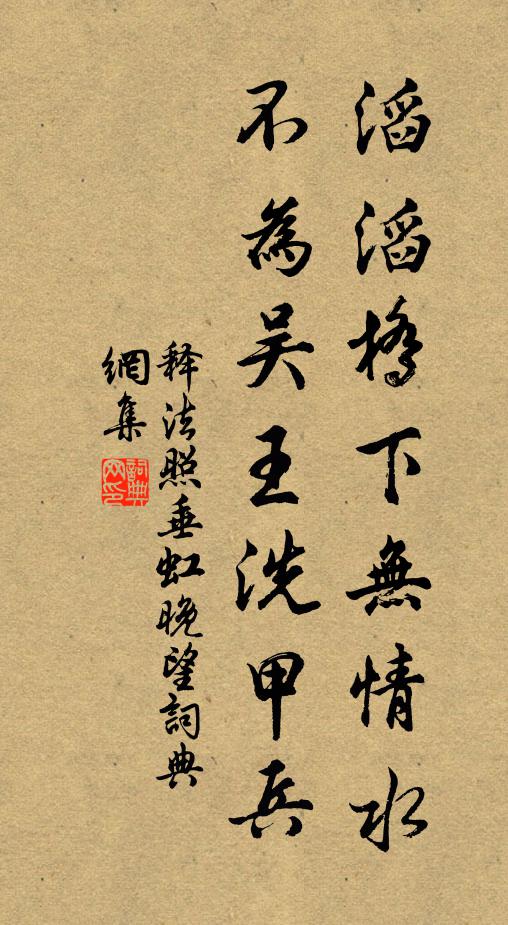 滔滔橋下無情水
不為吴王洗甲兵
释法照垂虹晚望詞典
網集
詞典
网印